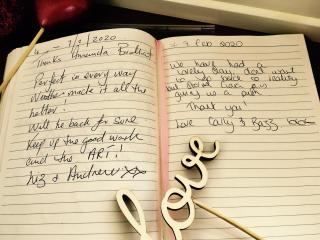 7/2/2020
Thanks Amanda
Perfect in every way
Weather made it all the
better!
Will be back for sure
Keep up the good work
and the ART!
Liz & Andrew xx
9 Feb 2020
We have had a
lovely stay, don't want
to go back to reality
but
giving us a push
Thank you!
Love Cally & Bazz xxx
love